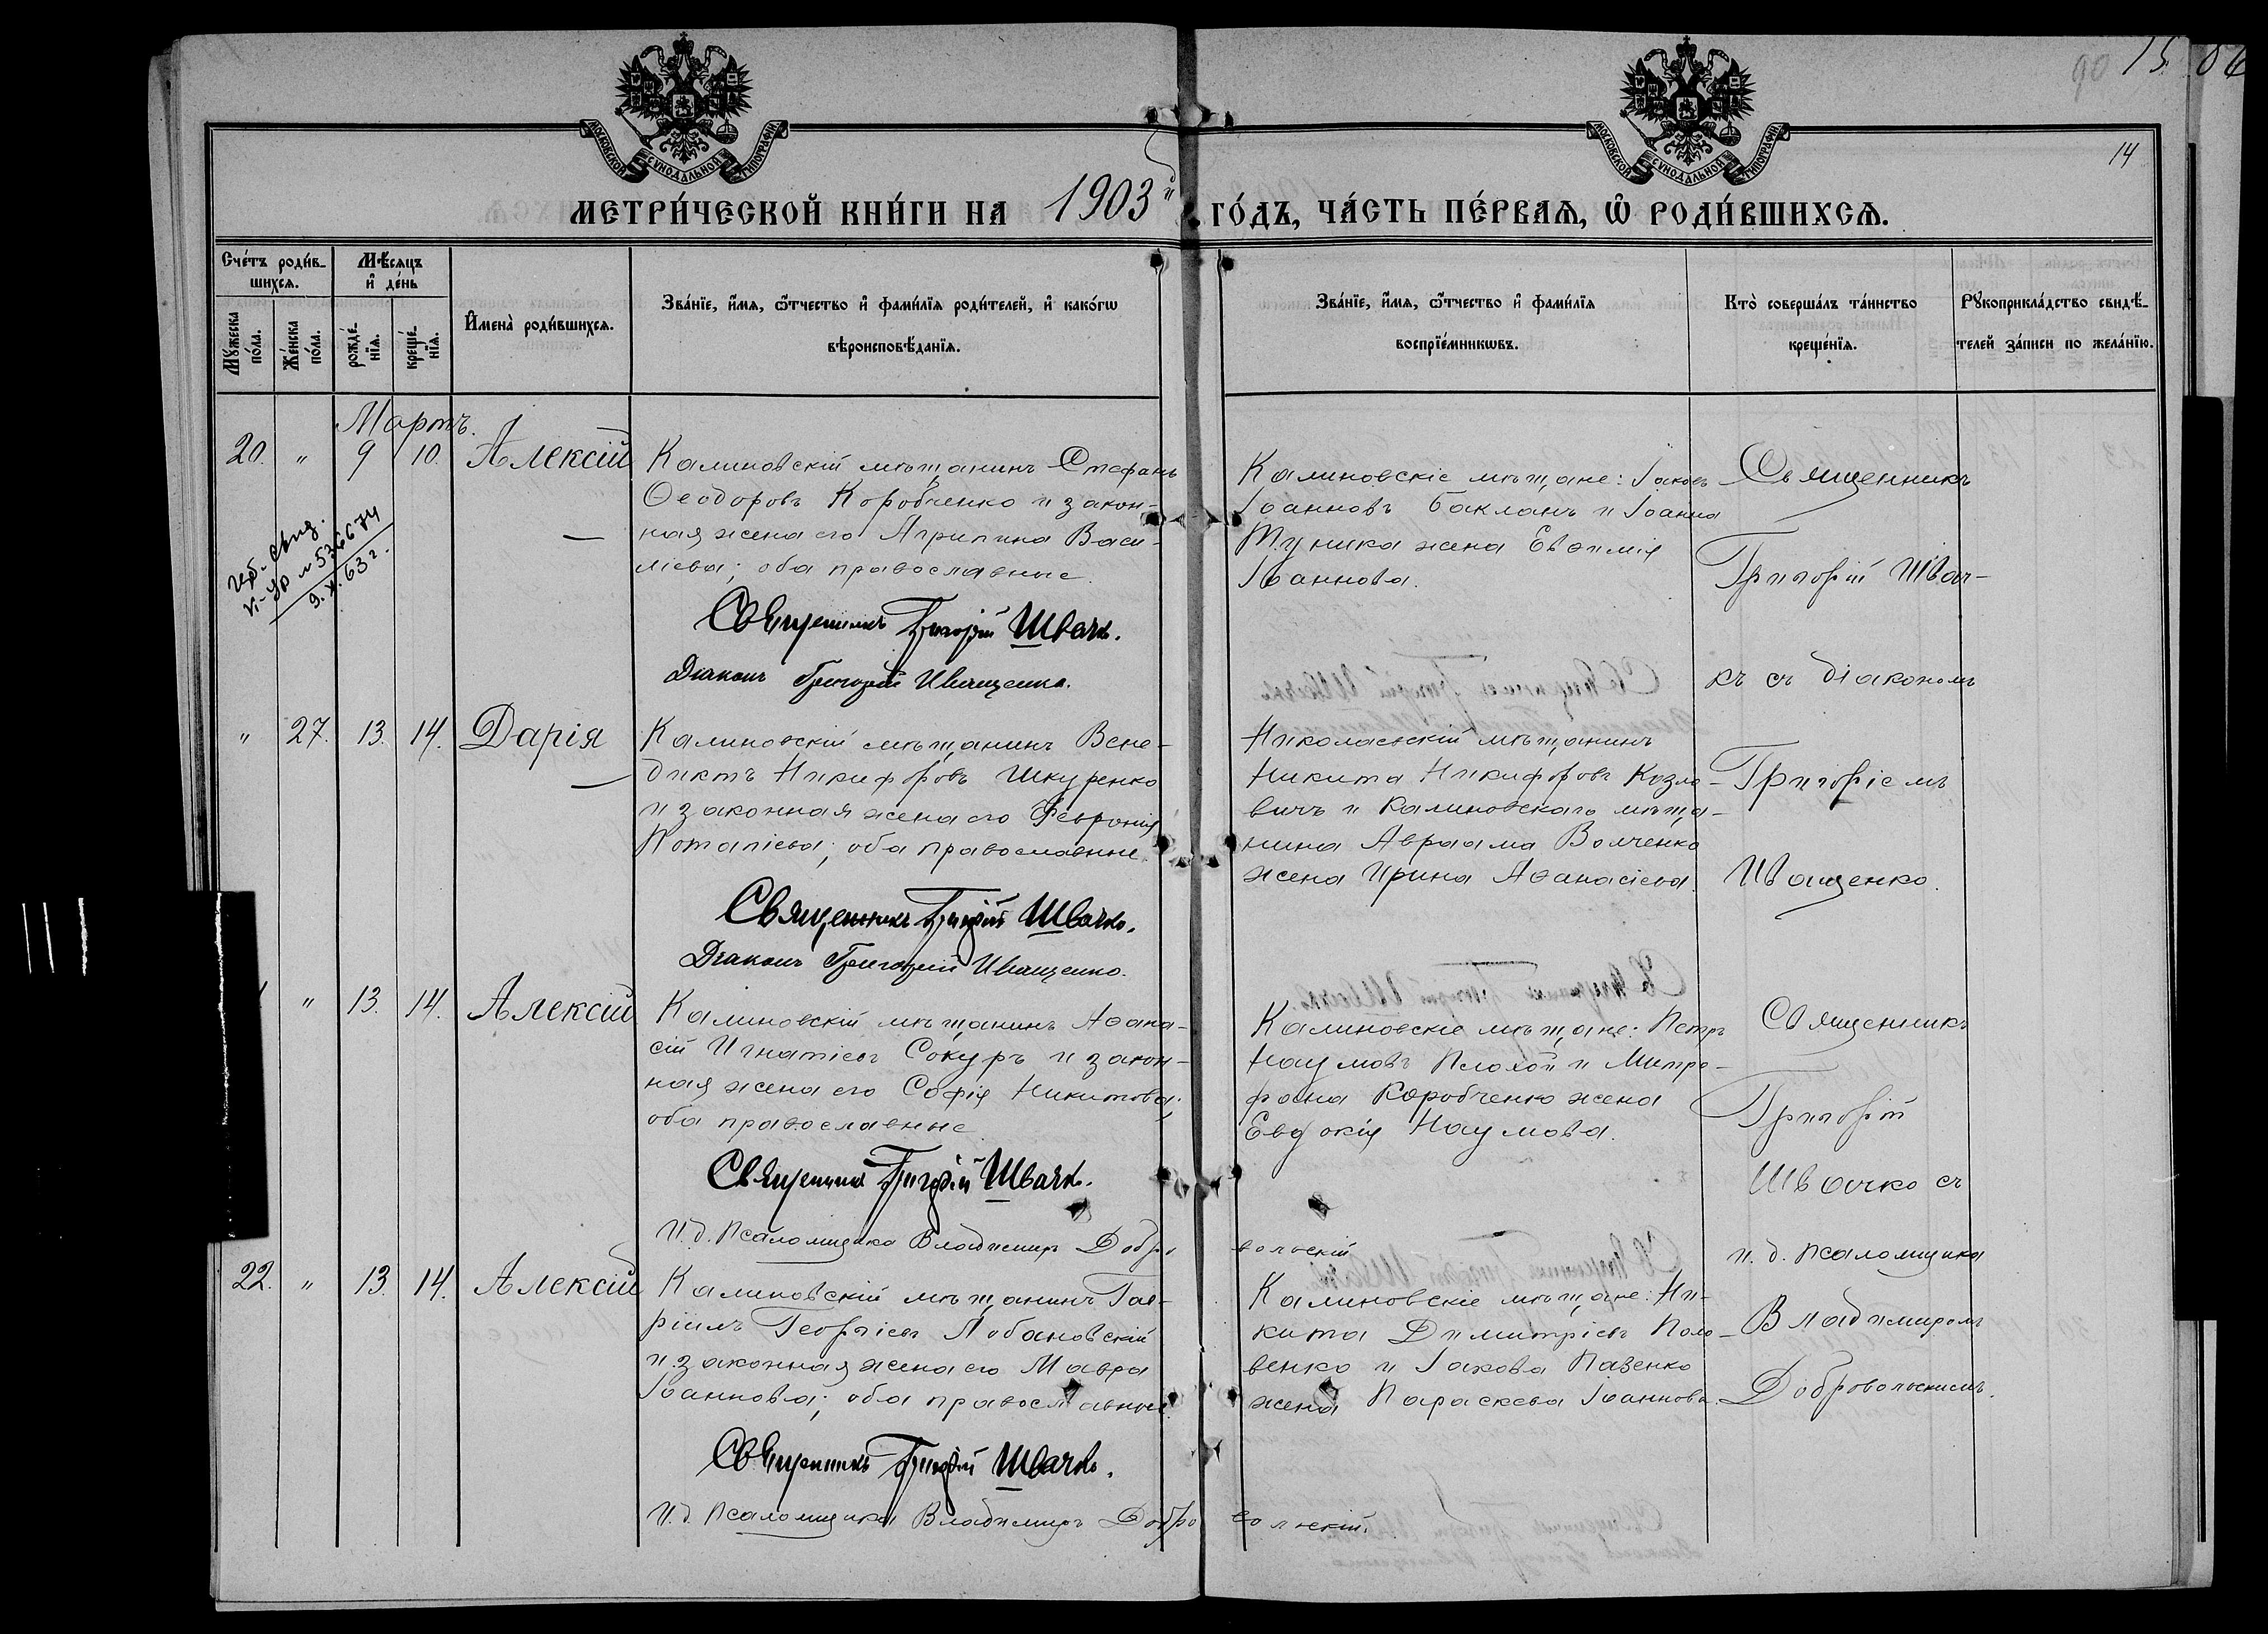 90 15 86
14
МОСКОВСКОЙ СѴНОДАЛЬНОЙ ТИПОГРАФІИ
МОСКОВСКОЙ СѴНОДАЛЬНОЙ ТИПОГРАФІИ
МЕТРИ́ЧЕСКОЙ КНИ́ГИ НА 1903й ГО́ДЪ, ЧА́СТЬ ПЕ́РВАѦ, Ѡ҆ РОДИ́ВШИХСѦ.
Сче́тъ роди́в-
шихсѧ.
Мꙋ́жеска по́ла.
Же́нска по́ла.
Мѣ́сѧцъ
и҆ де́нь
рожде́-
нїѧ.
креще́-
нїѧ.
И҆мена̀ роди́вшихсѧ.
Зва́нїе, и҆́мѧ, ѻ҆́тчество и҆ фами́лїѧ роди́телей, и҆ како́гѡ
вѣроисповѣ́данїѧ.
Зва́нїе, и҆́мѧ, ѻ҆́тчество и҆ фами́лїѧ
воспрїе́мникѡвъ.
Кто̀ соверша́лъ та́инство
креще́нїѧ.
Рꙋкоприкла́дство свидѣ́-
телей за́писи по жела́нїю.
Мартъ.
20. " 9 10. Алексій
Калиновскій мѣщанинъ Стефанъ
Ѳеодоровъ Коробченко и закон-
ная жена его Агрипина Васи-
ліева; оба православные.
Священникъ Григорій Швачко.
Діаконъ Григорій Иващенко.
Калиновскіе мѣщане: Іаковъ
Іоанновъ Бакланъ и Іоанна
Туника жена Евѳимія
Іоаннова.
Священникъ
Григорій Швач-
къ съ діакономъ
Григоріемъ
Иващенко.
9.X.63г.
" 27. 13. 14. Дарія
Калиновскій мѣщанинъ Вене-
диктъ Никифоровъ Шкуренко
и законная жена его Февронія
Потапіева; оба православные.
Священникъ Григорій Швачко.
Діаконъ Григорій Иващенко.
Николаевскій мѣщанинъ
Никита Никифоровъ Козло-
вичъ и Калиновскаго мѣща-
нина Авраама Волченко
жена Ирина Аѳанасіева.
" 13. 14. Алексій
Калиновскій мѣщанинъ Аѳана-
сій Игнатіевъ Сокуръ и закон-
ная жена его Софія Никитова;
оба православные
Священникъ Григорій Швачко.
И. д. Псаломщика Владимиръ Добровольскій
Калиновскіе мѣщане: Петръ
Наумовъ Плохой и Митро-
фана Коробченко жена
Евдокія Наумова.
Священникъ
Григорій
Швачко съ
и. д. псаломщика
Владимиромъ
Добровольскимъ.
22. " 13. 14. Алексій
Калиновскій мѣщанинъ Гав-
ріилъ Георгіевъ Лобановскій
и законная жена его Мавра
Іоаннова; оба православные.
Священникъ Григорій Швачко.
И. д. Псаломщика Владимиръ Добровольскій.
Калиновскіе мѣщане: Ни-
кита Димитріевъ Поло-
венко и Іакова Павенко
жена Параскева Іоаннова.